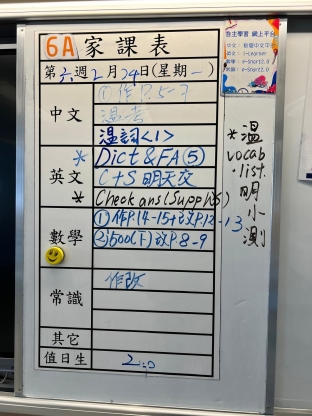 6A 家課表
第六週2月24日(星期一)
中文
①作P.5-7
溫書
溫詞<1>
英文
* Dict & FA⑤
C+S 明天交
* Check ans(Supp WS)
數學
①作P.14-15+改P.12-13
②500(下)改P.8-9
常識
作改
其它
值日生
* 溫
vocab
list.
明
小
測
自主學習 網上平台